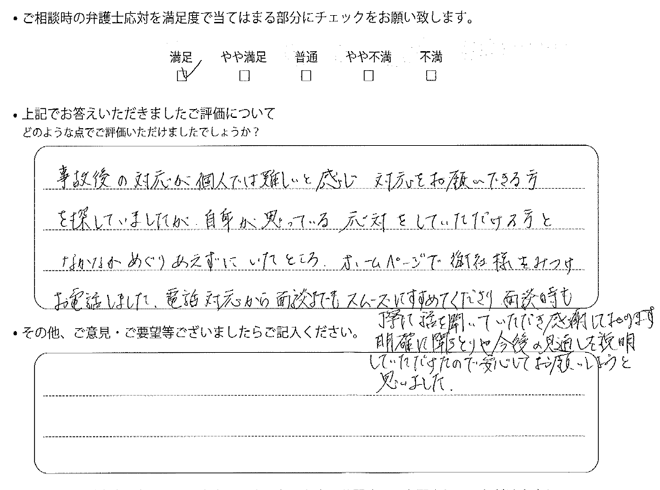 ・ご相談時の弁護士応対を満足度で当てはまる部分にチェックをお願い致します。
満足 やや満足 普通 やや不満 不満
・上記でお答えいただきましたご評価について
どのような点でご評価いただけましたでしょうか？
事故後の対応が個人では難しいと感じ 対応をお願いできる方
を探していましたが、自身が思っている 応対をしていただける方と
なかなかめぐりあえずにいたところ、ホームページで御社様をみつけ
お電話しました。電話対応から面談までもスムーズにすすめてくださり 面談時も
に話を聞いていただき感謝しております
明確に聞きとりや今後の見通しを説明
していただけたので安心してお願いしようと
思いました.
・その他、ご意見・ご要望等ございましたらご記入ください。